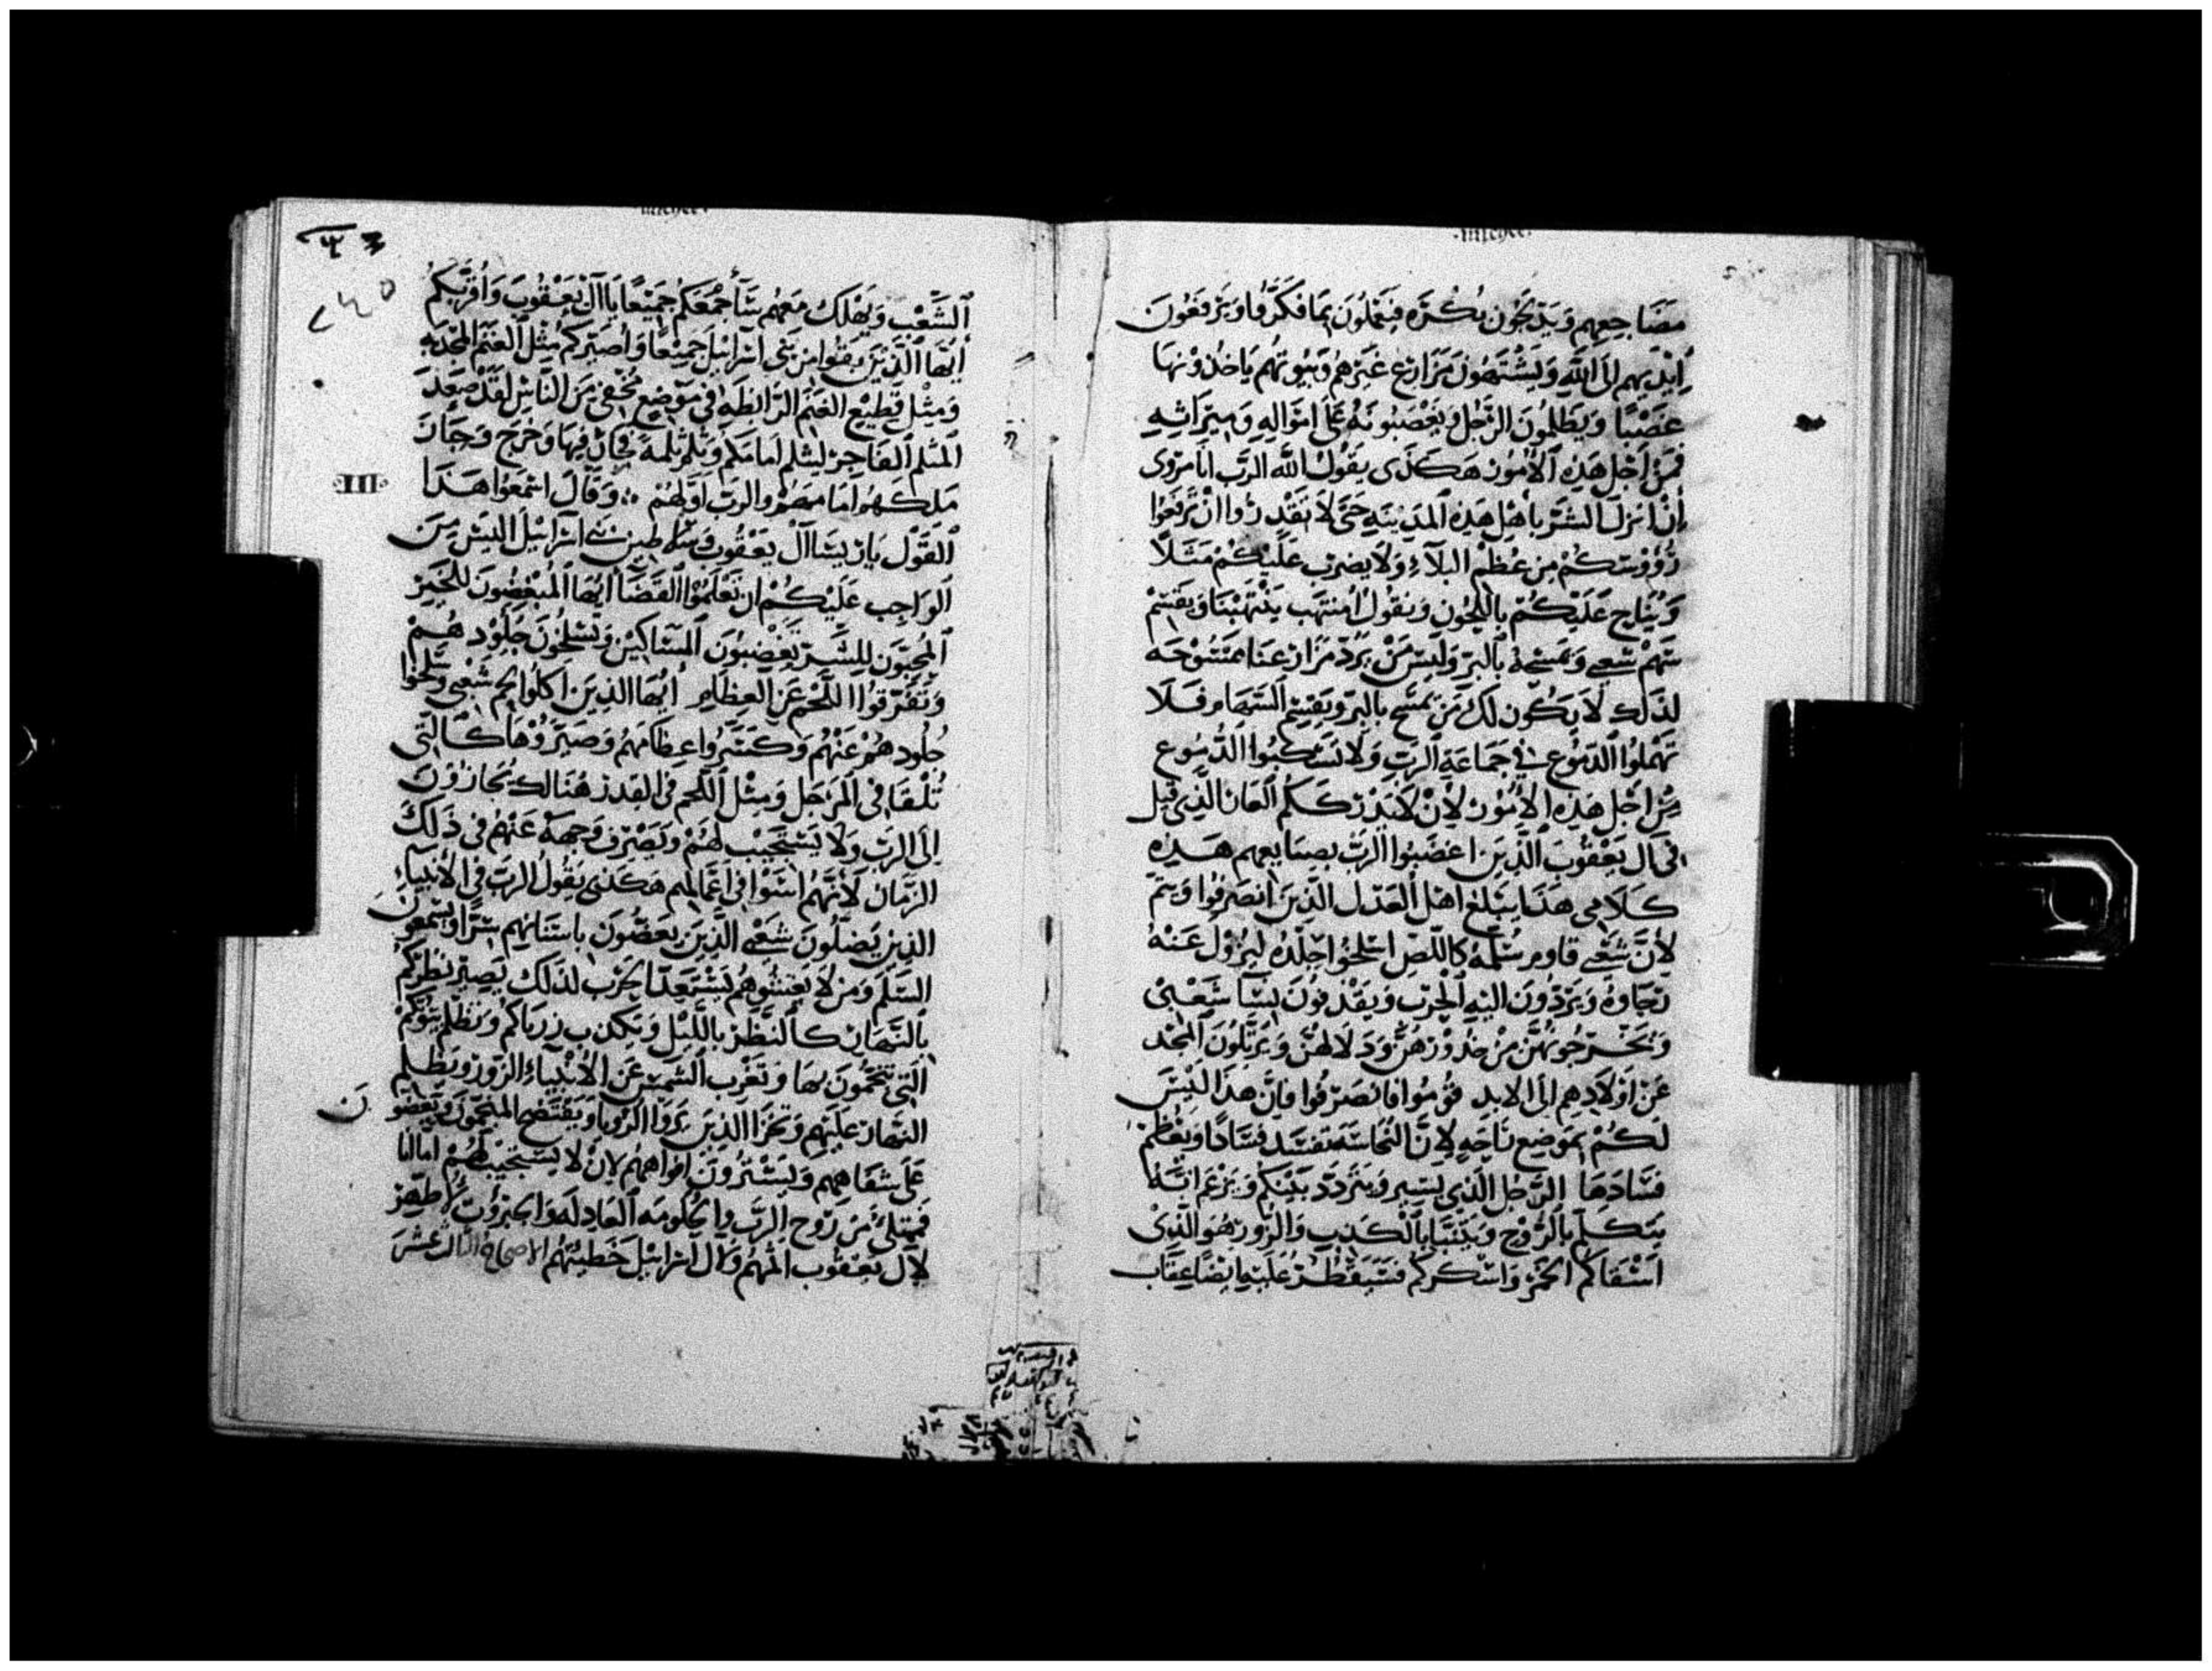 مضاجعهم ويدلجون بكره فيعملون بما فكروا ويرفعون
ايديهم الى الله ويشتهون مزارع غيرهم وبيوتهم ياخذونها
غصبًا ويظلمون الرجل ويغصبونه على امواله وميراثه
فمن اجل هذه الامور هكذى يقول الله الرب انا مروى
ان انزل الشر باهل هذه المدينه حتى لا تقدروا ان ترفعوا
رؤوسكم من عظم البلاء ولا يضرب عليكم مثلا
ويناح عليكم باللحون ويقول المنتهب ينتهبنا ويقتسم
سهم شعبى ويمسحه بالبر وليس من يرد مزارعنا ممسوحه
لذلك لا يكون لك من يمسح بالبر ويقسم السهام فلا
تهملوا الدموع فى جماعة الرب ولا تسكبوا الدموع
من اجل هذه الامور لان لا يدرككم العار الذى قيل
فى ال يعقوب الذين اغضبوا الرب بصنايعهم هذه
كلامى هذا يبلغ اهل العدل الذين انصرفوا ويتم
لان شعبى قاوم سلمه كاللص اسلخوا جلده ليزول عنه
رجاوه ويردون اليه الحرب ويقذفون نسا شعبى
ويخرجونهن من خدورهن ودلالهن ويرتلون المجد
عن اولادهم الى الابد قوموا فانصرفوا فان هذا ليس
لكم بموضع ناحه لان النجاسه تفسد فسادا ويعظم
فسادها الرجل الذى يسير ويتردد بينكم ويزعم انه
يتكلم بالروح ويتنبا بالكذب والزور هو الذى
اسقاكم الخمر واسكركم فستقطر عليها ايضا عقاب
الشعب ويهلك معهم ساجمعكم جميعًا يا ال يعقوب واقربكم
ايها الذين بقوا من بنى اسرائيل جميعًا واصيركم مثل الغنم المجدبه
ومثل قطيع الغنم الرابطه فى موضع مخفى من الناس لقد صعد
المثلم الفاجر ليثلم امامكم وثلم ثلمة فجاز فيها وخرج وجاز
ملكهم امامهم والرب اولهم وقال اسمعوا هذا
III
القول يا ريسا ال يعقوب وسلاطين بنى اسرائيل اليس من
الواجب عليكم ان تعلموا القضا ايها المبغضون للخير
المحبون للشر تغضبون المساكين وتسلخون جلودهم
وتفرقوا اللحم عن العظام ايها الذين اكلوا لحم شعبى وسلخوا
جلودهم عنهم وكسروا عظامهم وصيروها كالتى
تلقا فى المرجل ومثل اللحم فى القدر هنالك يجازون
الى الرب ولا يستجيب لهم ويصرف وجهه عنهم فى ذلك
الزمان لانهم اسوا فى اعمالهم هكذى يقول الرب فى الانبياء
الذين يضلون شعبى الذين يعضون باسنانهم شرا ويسمعون
السلم ومن لا يغيثوهم يستعد لحرب لذلك يصير نظركم
بالنهار كالنظر بالليل ويكذب زرياكم ويظلم بيوتكم
التى تنجمون بها وتغرب الشمس عن الانبياء الزور ويظلم
النهار عليهم وتخزا الذين يروا الرويا ويفتضح المنجمون ويعضون
على شفاههم ويسترون افواههم لان لا يستجيب لهم اما انا
فممتلئ من روح الرب والحكومه العادله والجبروت لاظهر
لال يعقوب اثمهم ولال اسرائيل خطيتهم الاصحاح الثالث عشر